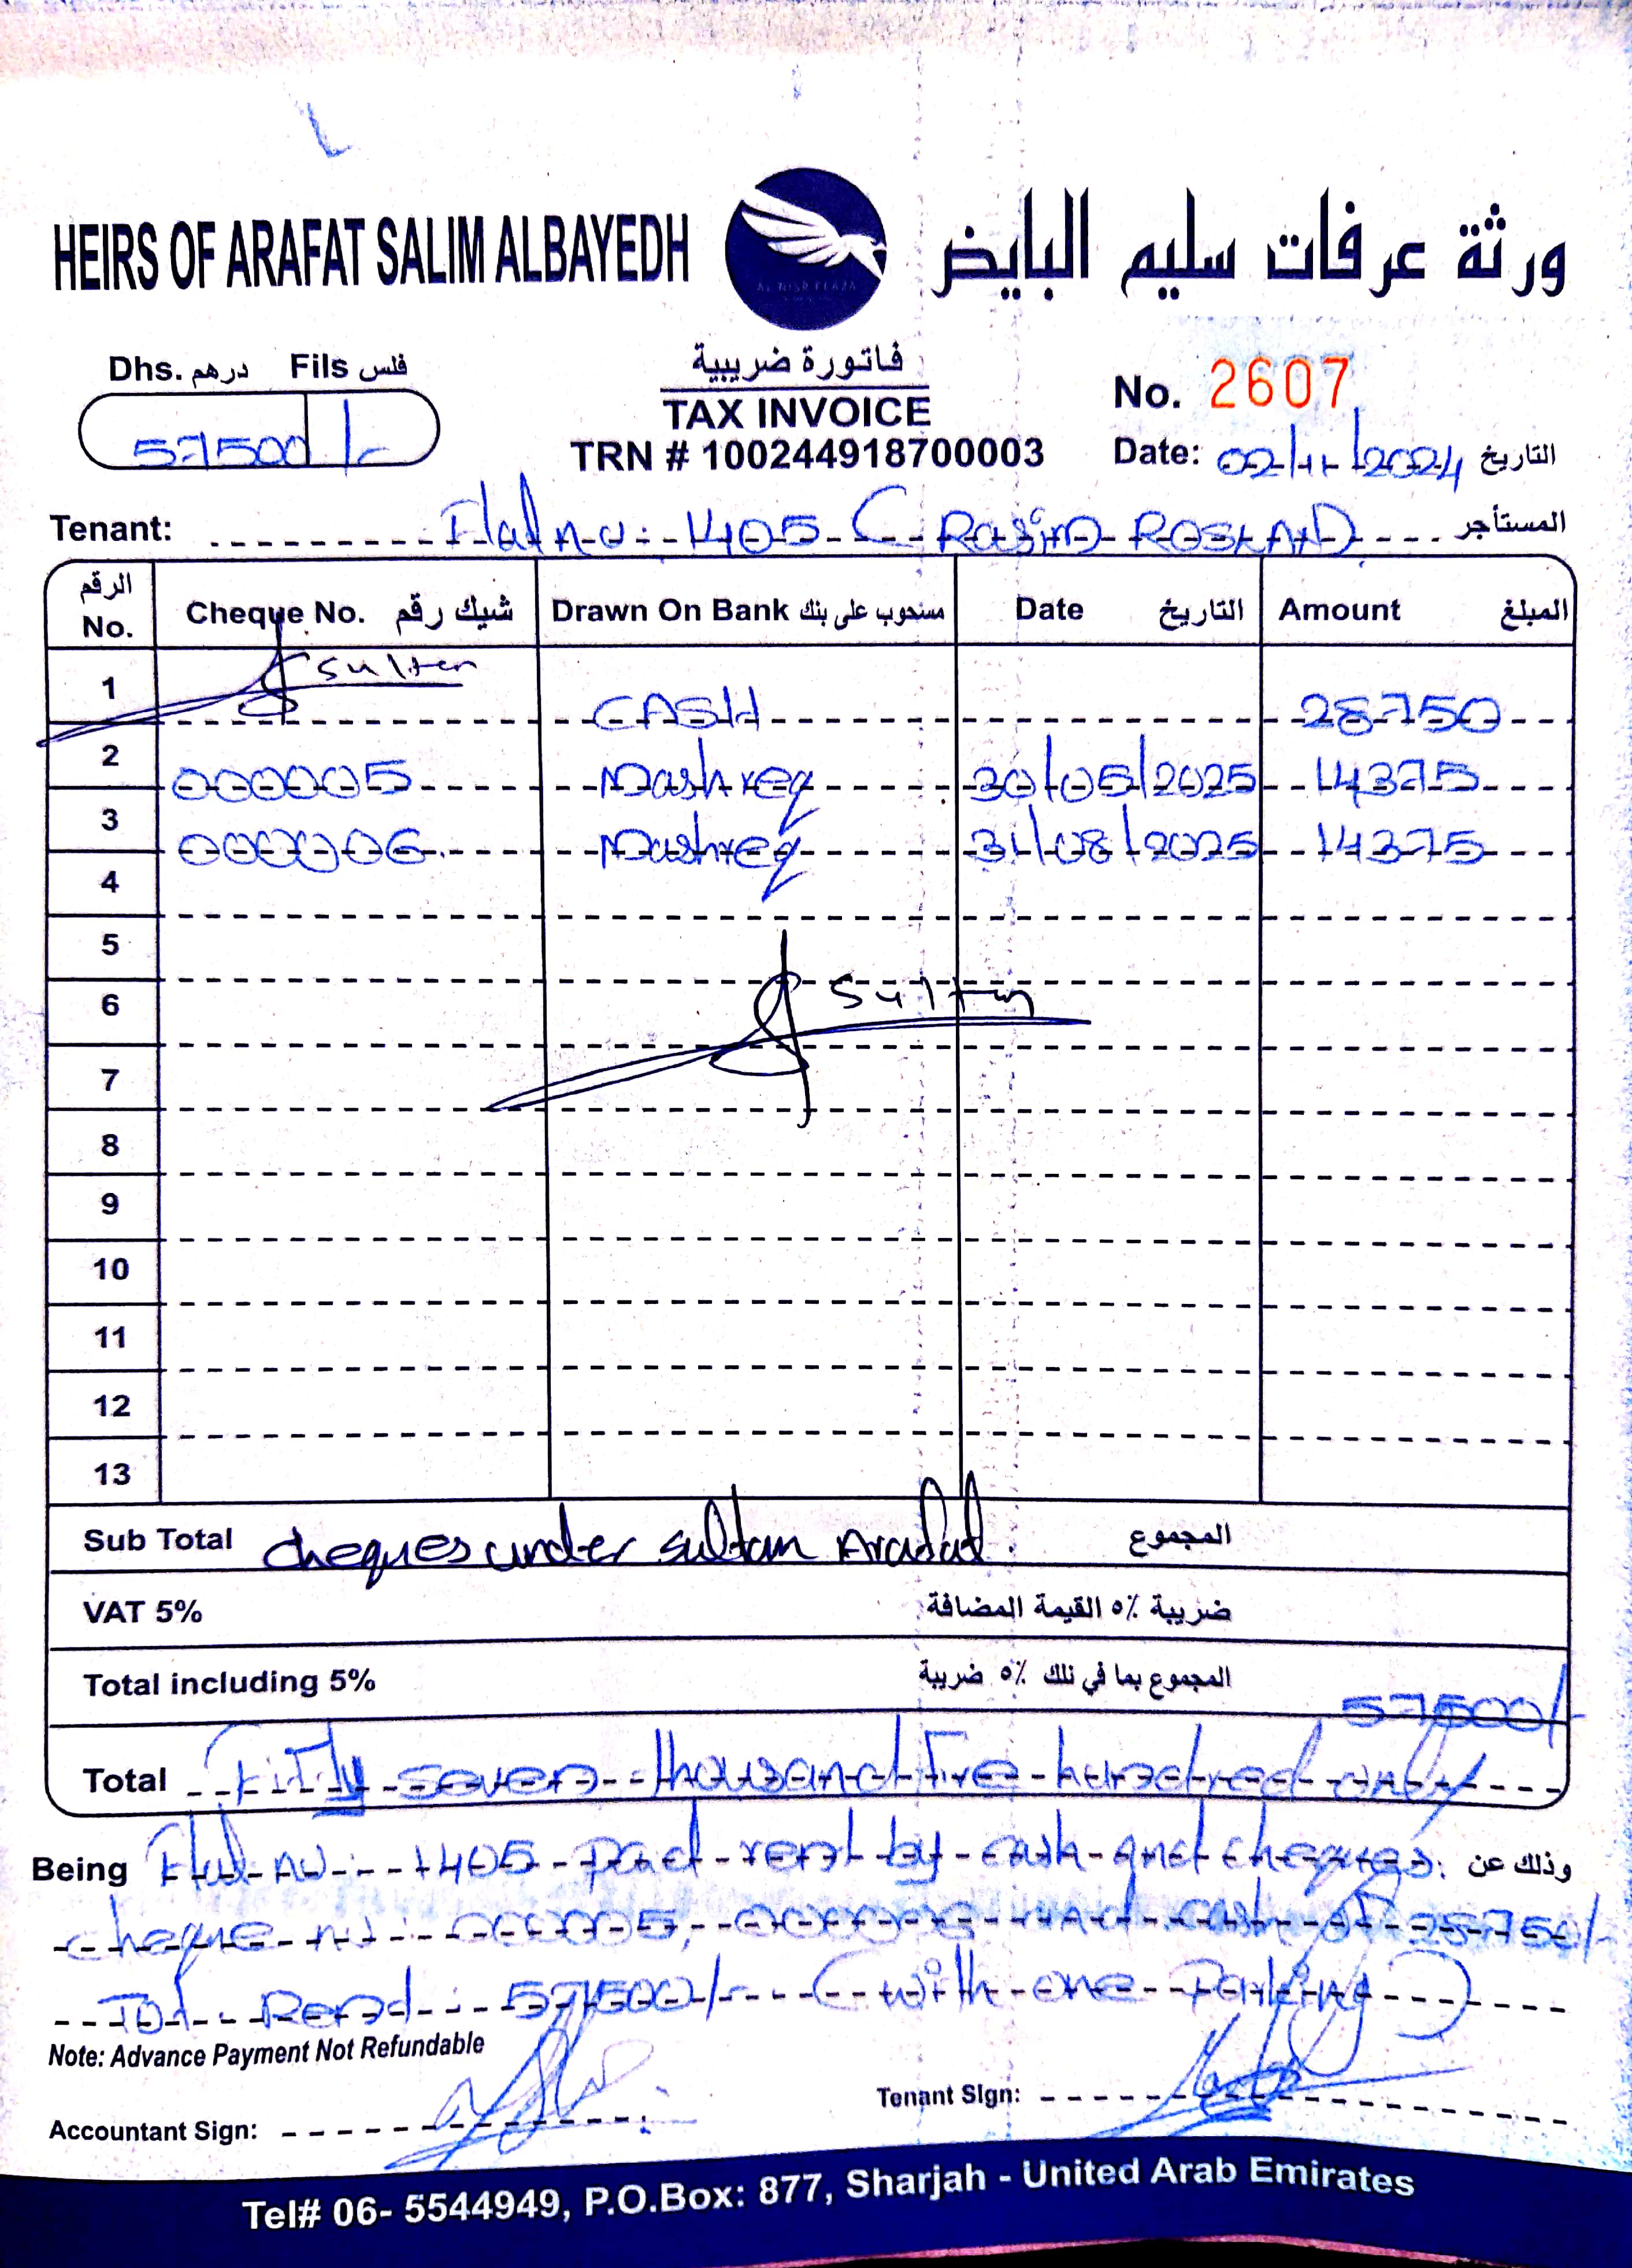 HEIRS OF ARAFAT SALIM ALBAYEDH
ورثة عرفات سليم البايض
AL NISR PLAZA
Dhs. درهم Fils فلس
57500 /-
فاتورة ضريبية
TAX INVOICE
TRN # 100244918700003
No. 2607
Date: 02/11/2024 التاريخ
Tenant: Flat no: 1405 ( Rasim ROSHAD المستأجر
الرقم No. Cheque No. شيك رقم Drawn On Bank مسحوب على بنك Date التاريخ Amount المبلغ
1 Sultan CASH 28750
2 000005 Mashreq 30/05/2025 14375
3 000006 Mashreq 31/08/2025 14375
4
5
6 Sultan
7
8
9
10
11
12
13
Sub Total cheques under Sultan Arafat. المجموع
VAT 5% ضريبة ٥٪ القيمة المضافة
Total including 5% المجموع بما في ذلك ٥٪ ضريبة 57500/-
Total Fifty seven thousand Five hundred only
Being Flat no: 1405 paid rent by cash and cheques. وذلك عن
cheque no: 000005, 000006 and cash of 28750/-
Tot Rend: 57500/- (with one Parking)
Note: Advance Payment Not Refundable
Accountant Sign:
Tenant Sign:
Tel# 06- 5544949, P.O.Box: 877, Sharjah - United Arab Emirates